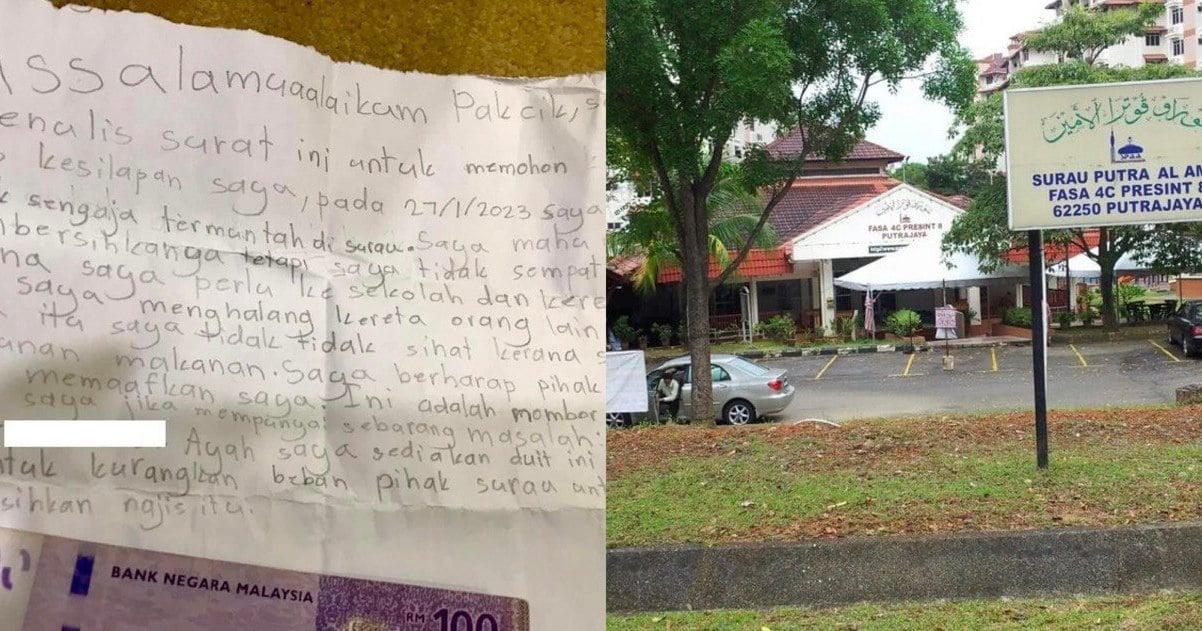 ssalamuaalaikum Pakcik, s
enulis surat ini untuk memohon
kesilapan saya, pada 27/1/2023 saya
k sengaja termuntah di surau. Saya mahu
bersihkanya tetapi saya tidak sempat
na saya perlu ke sekolah dan kere
saya menghalang kereta orang lain
itu saya tidak tidak sihat kerana s
anan makanan. Saya berharap pihak
memaafkan saya. Ini adalah nombor
saya jika mempunyai sebarang masalah.
Ayah saya sediakan duit ini
tuk kurangkan beban pihak surau unt
sihkan najis itu.
BANK NEGARA MALAYSIA
RM 100
FASA 4C PRESINT 8
PUTRAJAYA
SURAU PUTRA AL AM
FASA 4C PRESINT 8
62250 PUTRAJAYA